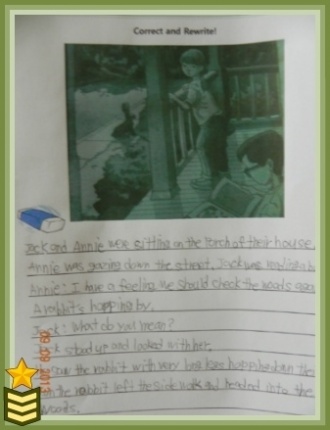 Correct and Rewrite!
Jack and Annie were sitting on the Porch of their house.
Annie was gazing down the street. Jack was reading
Annie: I have a feeling we should check the woods
A rabbit's hopping by.
Jack: What do you mean?
stood up and looked with her.
saw the rabbit with very long
the rabbit left the side walk and headed into the
woods.
09 09 2013